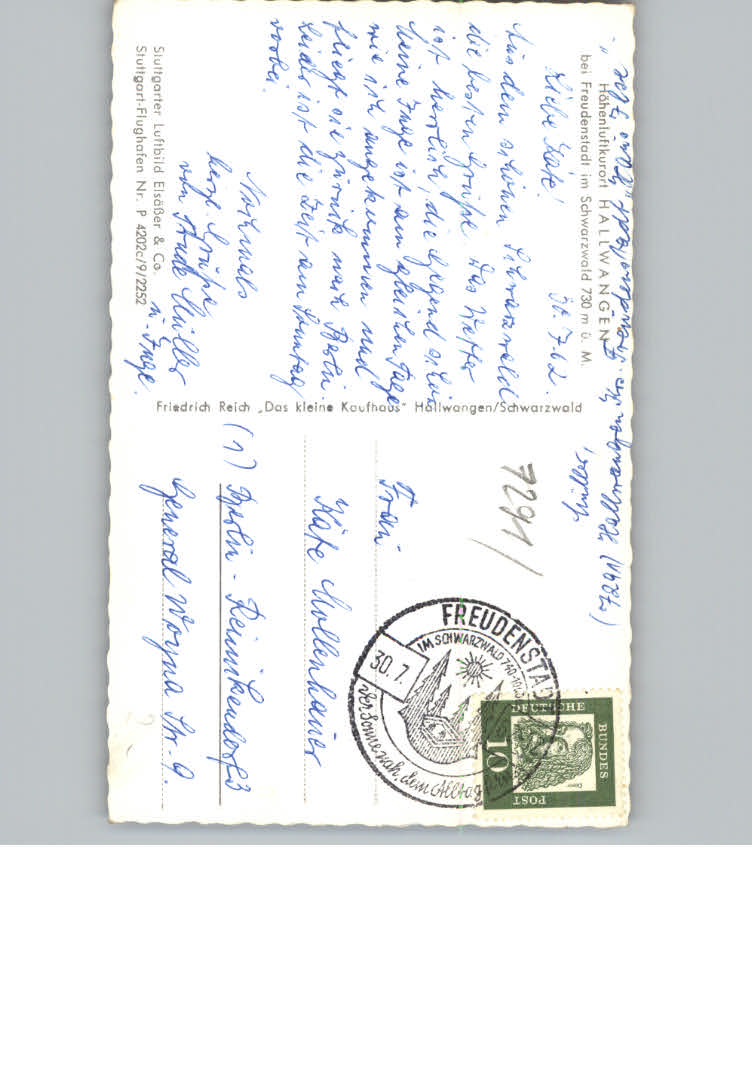 Höhenluftkurort HALLWANGEN
bei Freudenstadt im Schwarzwald 730 m ü. M.
30.7.62.
Liebe Käte!
Aus dem schönen Schwarzwald
die besten Grüße. Das Wetter
ist herrlich, die Gegend schön
Meine Inge ist am gleichen Tage
wie ich angekommen und
fliegt sie zurück nach Berlin.
Leider ist die Zeit am Sonntag
vorbei.
Nochmals
herzl. Grüße
von Müller
u. Inge.
Stuttgarter Luftbild Elsäßer & Co.
Stuttgart-Flughafen Nr. P 4202c/9/2252
Friedrich Reich „Das kleine Kaufhaus" Hallwangen/Schwarzwald
(7291) Hallwangen Kr. Freudenstadt
7291/
FREUDENSTADT
IM SCHWARZWALD 740-1000
30.7.
der Sonne nah, dem Alltag
DEUTSCHE
BUNDES
POST
10
Dürer
Frau
Käte Mollenhauer
(1) Berlin-Reinickendorf 3
General Woyna Str. 9.